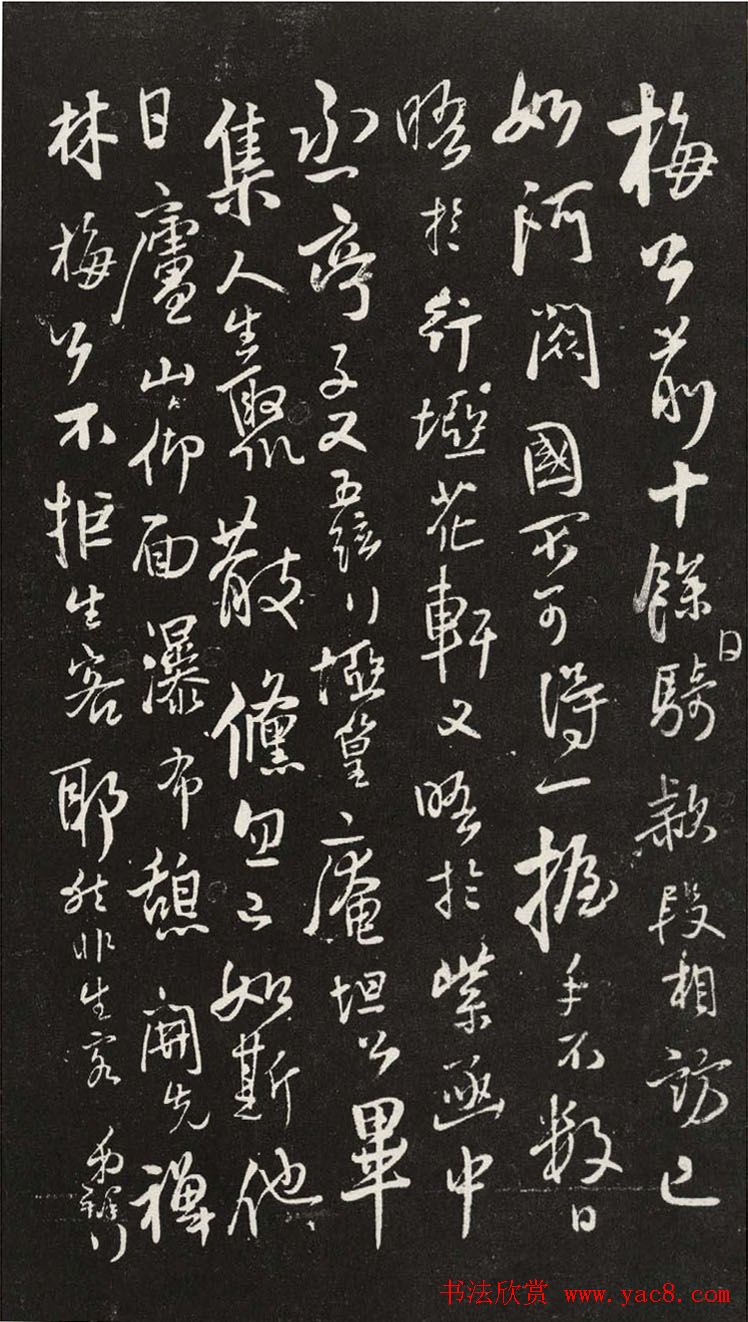 梅公前十餘日騎款段相訪已
如阿閦國不可得一握手不數日
晤於花軒又晤於紫函中
丞亭子又五弦庵坦公畢
集人生聚散儵忽如斯他
日廬山仰面瀑布憩開先禪
林梅公不拒生客耶然非生客
书法欣赏 www.yac8.com